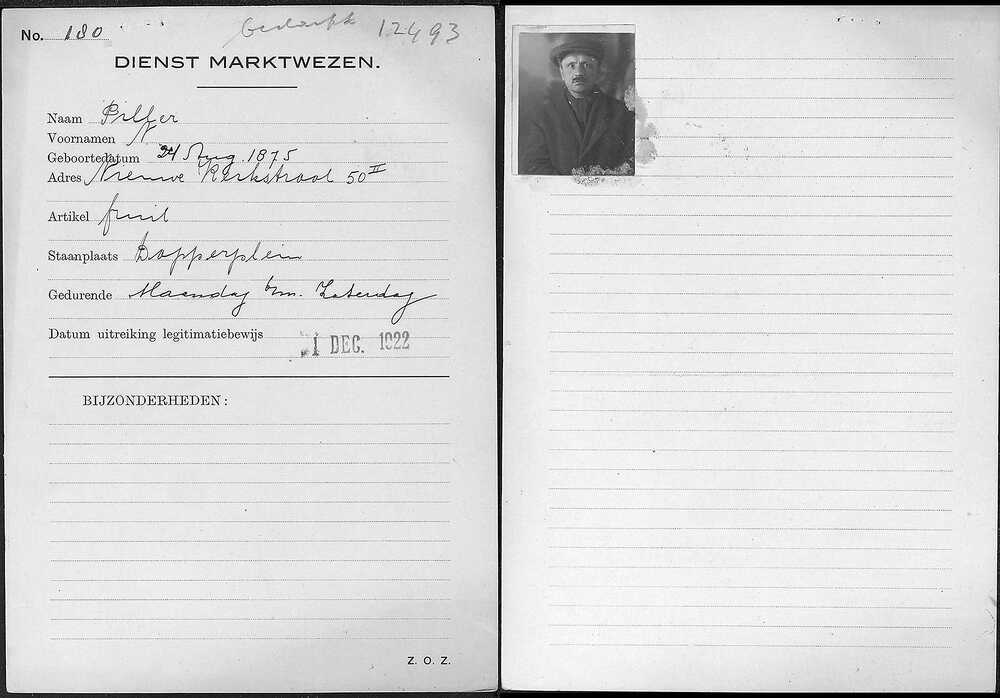 No. 180 12493
DIENST MARKTWEZEN.
Naam Pilfer
Voornamen N
Geboortedatum 24 Aug. 1875
Adres Nieuwe Kerkstraat 50 II
Artikel fruit
Staanplaats Dapperplein
Gedurende Maandag t/m. Zaterdag
Datum uitreiking legitimatiebewijs
1 DEC. 1922
BIJZONDERHEDEN:
Z. O. Z.